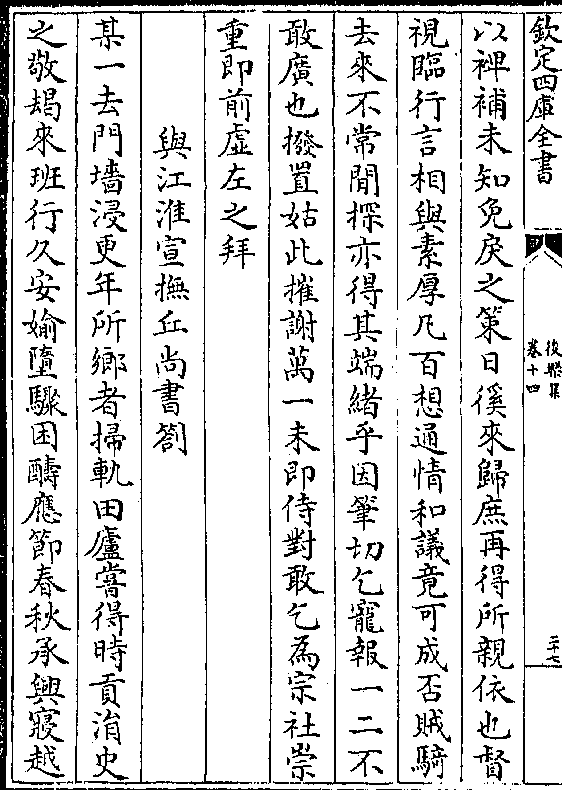 欽定四庫全書
後樂集
卷十四
二十七
以裨補未知免戾之策日徯來歸庶再得所親依也督
視臨行言相與素厚凡百想通情和議竟可成否賊騎
去來不常間探亦得其端緒乎因筆切乞寵報一二不
敢廣也撥置姑此摧謝萬一未即侍對敢乞為宗社崇
重即前虛左之拜
與江淮宣撫丘尚書劄
某一去門墻浸更年所鄉者掃軌田廬嘗得時貢涓史
之敬朅來班行久安婾墮驟困醻應節春秋承興寢越